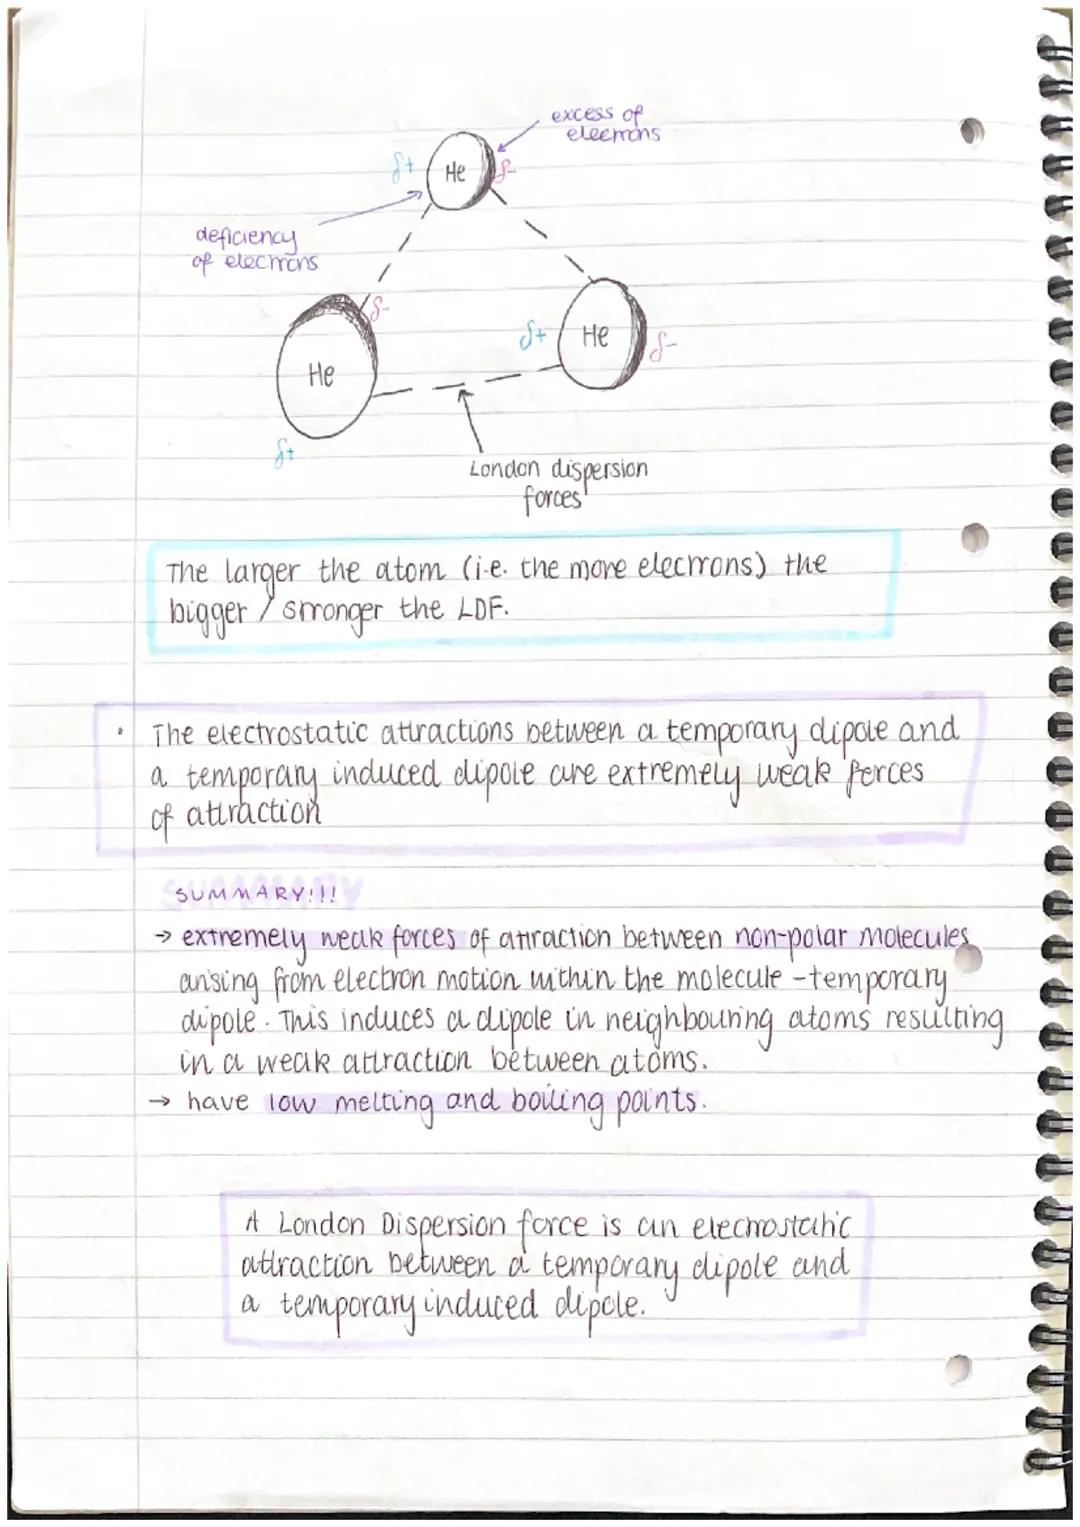 excess of
electrons
δ+
He
δ-
deficiency
of electrons
δ-
δ+
He
δ-
He
δ+
London dispersion
forces
The larger the atom (i.e. the more electrons) the
bigger / stronger the LDF.
• The electrostatic attractions between a temporary dipole and
a temporary induced dipole are extremely weak forces
of attraction
SUMMARY!!!
→ extremely weak forces of attraction between non-polar molecules
arising from electron motion within the molecule - temporary
dipole. This induces a dipole in neighbouring atoms resulting
in a weak attraction between atoms.
→ have low melting and boiling points.
A London Dispersion force is an electrostatic
attraction between a temporary dipole and
a temporary induced dipole.